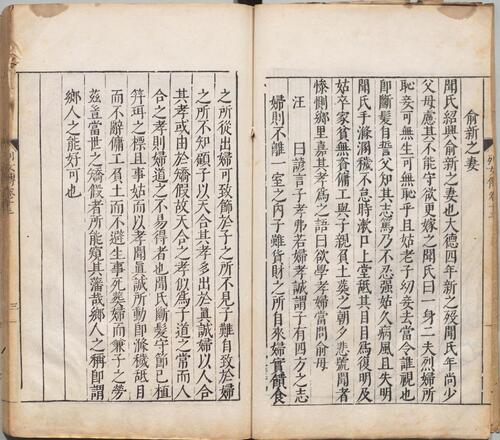 俞新之妻
聞氏紹興俞新之妻也大德四年新之歿聞氏年尚少
父母慮其不能守欲更嫁之聞氏曰一身二夫烈婦所
恥妾可無生可無恥乎且姑老子幼妾去當令誰視也
即斷髮自誓父知其志篤乃不忍强姑久病風且失明
聞氏手滌溷穢不怠時漱口上堂舐其目目爲復明及
姑卒家貧無資傭工與子親負土葬之朝夕悲號聞者
慘惻鄉里嘉其孝爲之語曰欲學孝婦當問俞母
汪 曰諺言子孝弗若婦孝誠謂子有四方之志
婦則不離一室之內子雖貨財之所自來婦實饋食
之所從出婦可致飾於子之所不見子難自致於婦
之所不知顧子以天合其孝多出於眞誠婦以人合
其孝或由於矯假故天合之孝似爲子道之常而人
合之孝則婦道之不易得者也聞氏斷髮守節已植
笄珥之標且事姑而以孝聞眞誠所動即滌穢舐目
而不辭傭工負土而不避生事死葬婦而兼子之勞
茲豈當世之矯假者所能窺其藩哉鄉人之稱即謂
鄉人之能好可也
三